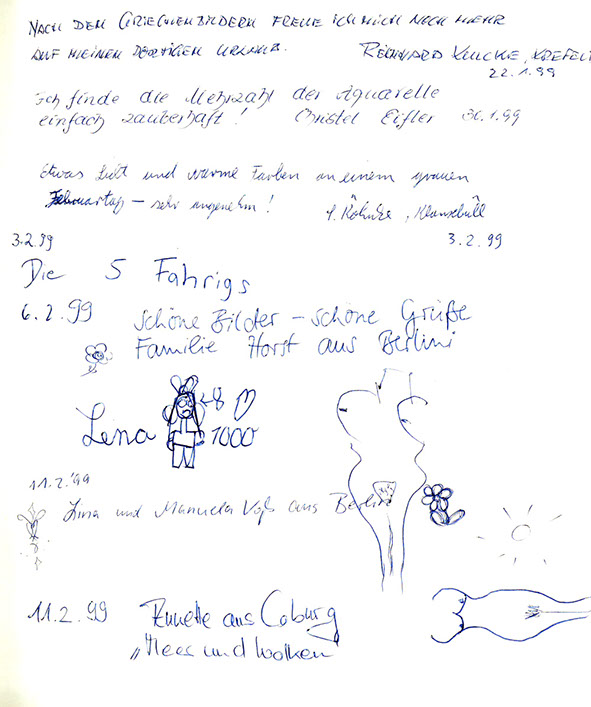 NACH DEN GRIECHENBILDERN FREUE ICH MICH NOCH MEHR
AUF MEINEN DORTIGEN URLAUB.
REINHARD KREFELD
22.1.99
Ich finde die Mehrzahl der Aquarelle
einfach zauberhaft! Christel Eifler 30.1.99
Etwas Licht und warme Farben an einem grauen
Februartag – sehr angenehm!
Klanxbüll
3.2.99
3.2.99
Die 5 Fahrigs
6.2.99 schöne Bilder – schöne Grüße
Familie Horst aus Berlin
Lena
1000
11.2.'99
und Manuela Voß aus Berlin
11.2.99 aus Coburg
„Meer und Wolken"